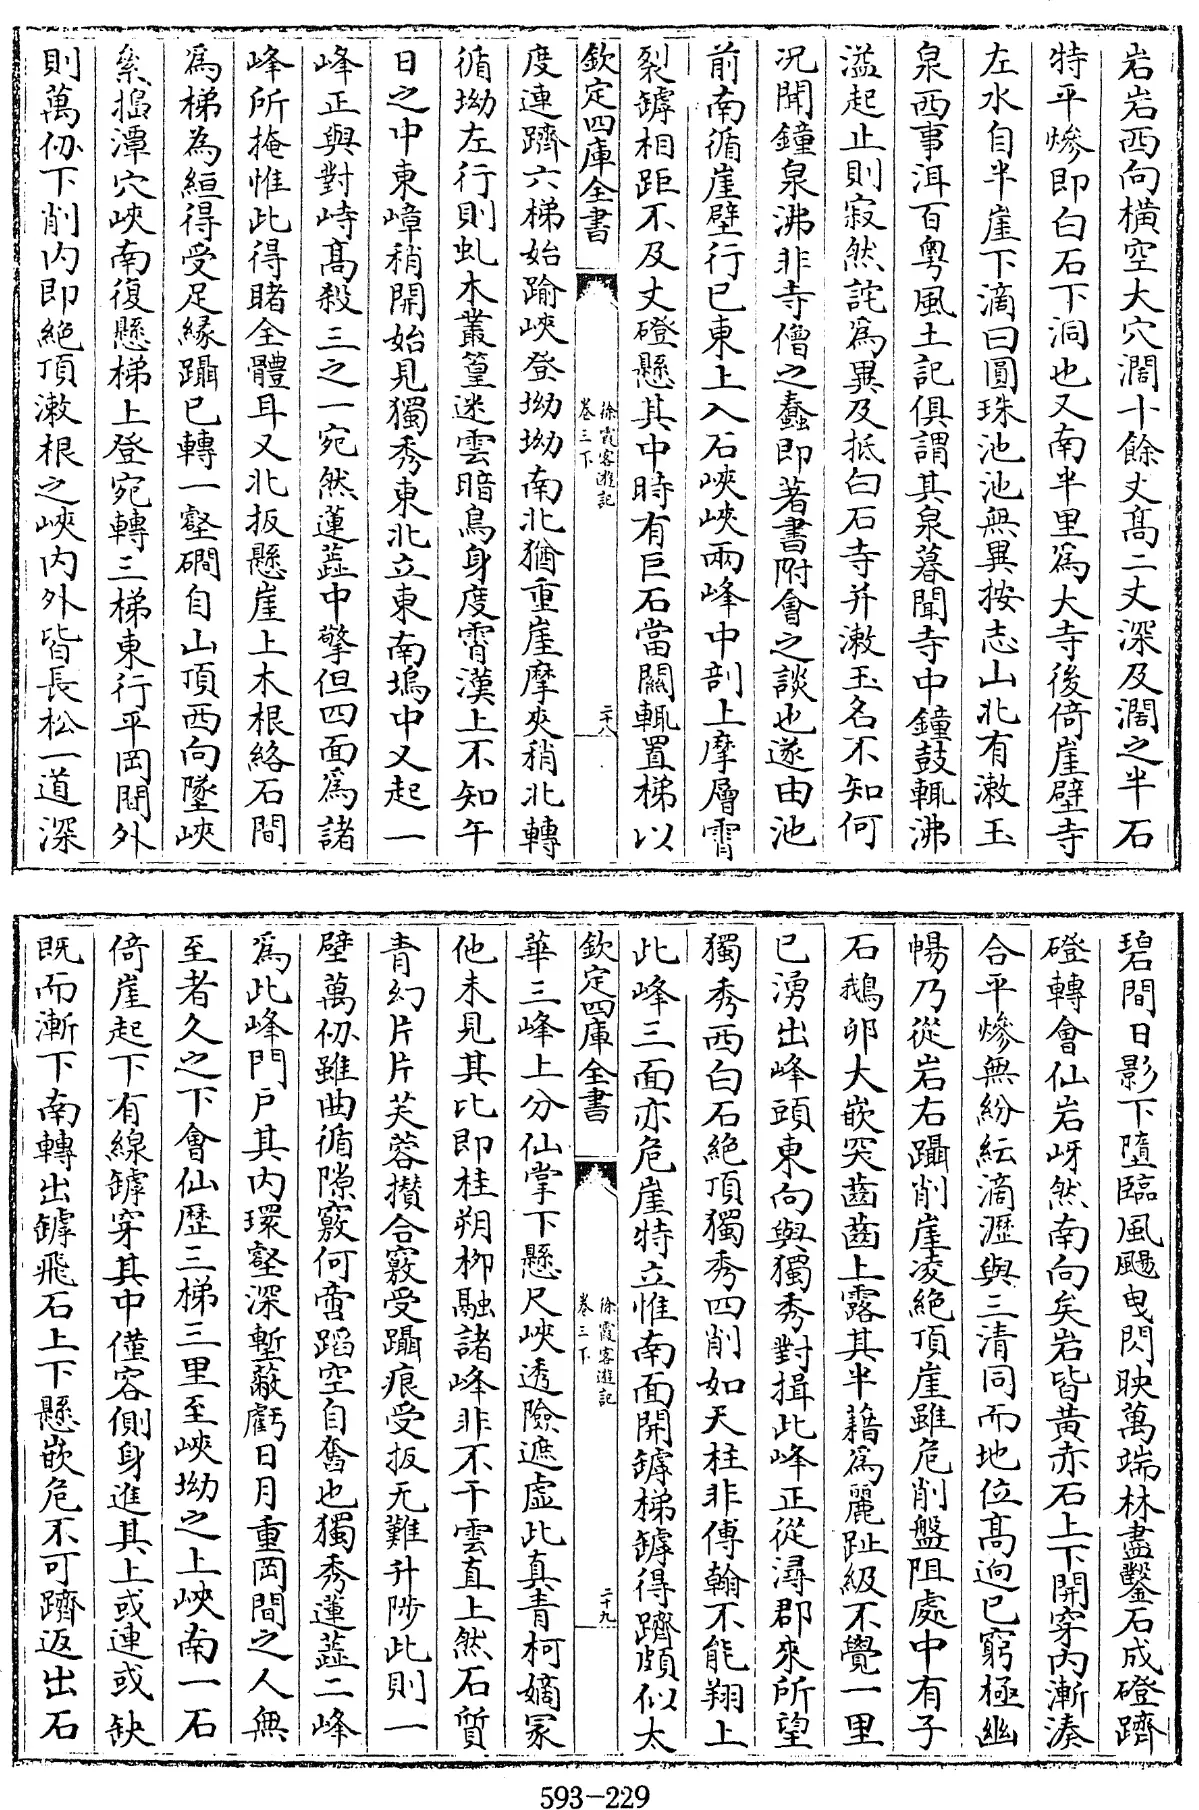 岩岩西向橫空大穴濶十餘丈髙二丈深及濶之半石
特平慘即白石下洞也又南半里爲大寺後倚崖壁寺
左水自半崖下滴曰圓珠池池無異按志山北有漱玉
泉西事洱百粵風土記俱謂其泉暮聞寺中鐘鼓輒沸
溢起止則寂然詫爲異及抵白石寺并漱玉名不知何
况聞鐘泉沸非寺僧之蠢即著書附會之談也遂由池
前南循崖壁行巳東上入石峽峽兩峰中剖上摩層霄
裂罅相距不及丈磴懸其中時有巨石當關輒置梯以
欽定四庫全書
徐霞客遊記
卷三下
二十八
度連躋六梯始踰峽登坳坳南北猶重崖摩夾稍北轉
循坳左行則虬木叢篁迷雲暗鳥身度霄漢上不知午
日之中東嶂稍開始見獨秀東北立東南塢中又起一
峰正與對峙髙殺三之一宛然蓮蕋中擎但四面爲諸
峰所掩惟此得睹全體耳又北扳懸崖上木根絡石間
爲梯為絙得受足縁躡已轉一壑磵自山頂西向墜峽
絫搗潭穴峽南復懸梯上登宛轉三梯東行平岡閒外
則萬仭下削内即絶頂漱根之峽内外皆長松一道深
碧間日影下墮臨風颺曳閃映萬端林盡鑿石成磴躋
磴轉會仙岩岈然南向矣岩皆黄赤石上下開穿内漸湊
合平慘無紛紜滴瀝與三清同而地位髙迥已窮極幽
暢乃從岩右躡削崖凌絶頂崖雖危削盤阻處中有子
石鵝卵大嵌突齒齒上露其半藉爲麗趾級不覺一里
已湧出峰頭東向與獨秀對揖此峰正從潯郡來所望
獨秀西白石絶頂獨秀四削如天柱非傅翰不能翔上
此峰三面亦危崖特立惟南面開罅梯罅得躋頗似太
欽定四庫全書
徐霞客遊記
卷三下
二十九
華三峰上分仙掌下懸尺峽透險遮虚此真青柯嫡冡
他未見其比即桂朔栁融諸峰非不干雲直上然石質
青幻片片芙蓉攅合竅受躡痕受扳无難升陟此則一
壁萬仭雖曲循隙竅何啻蹈空自奮也獨秀蓮蕋二峰
爲此峰門戸其内環壑深塹蔽虧日月重岡間之人無
至者久之下會仙歴三梯三里至峽坳之上峽南一石
倚崖起下有線罅穿其中僅容側身進其上或連或缺
既而漸下南轉出罅飛石上下懸嵌危不可躋返出石
593-229